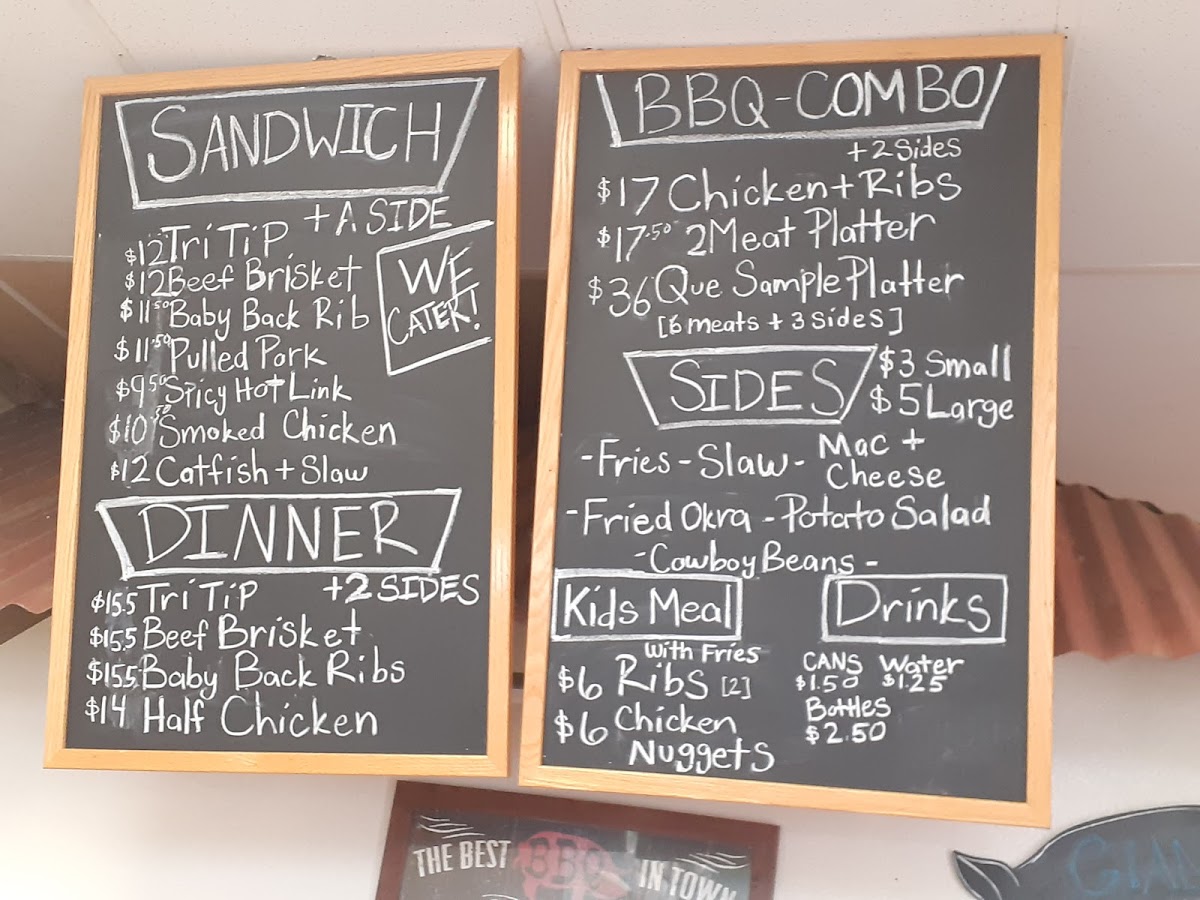 SANDWICH
+ A SIDE
$12 Tri Tip
$12 Beef Brisket
$11.50 Baby Back Rib
$11.50 Pulled Pork
$9.50 Spicy Hot Link
$10.50 Smoked Chicken
$12 Catfish + Slaw
WE
CATER!
DINNER
+2 SIDES
$15.5 Tri Tip
$15.5 Beef Brisket
$15.5 Baby Back Ribs
$14 Half Chicken
BBQ-COMBO
+ 2 Sides
$17 Chicken + Ribs
$17.50 2 Meat Platter
$36 Que Sample Platter
[6 meats + 3 sides]
SIDES
$3 Small
$5 Large
- Fries - Slaw - Mac +
Cheese
- Fried Okra - Potato Salad
- Cowboy Beans -
Kids Meal
with Fries
$6 Ribs [2]
$6 Chicken
Nuggets
Drinks
CANS Water
$1.50 $1.25
Bottles
$2.50
THE BEST BBQ IN TOWN